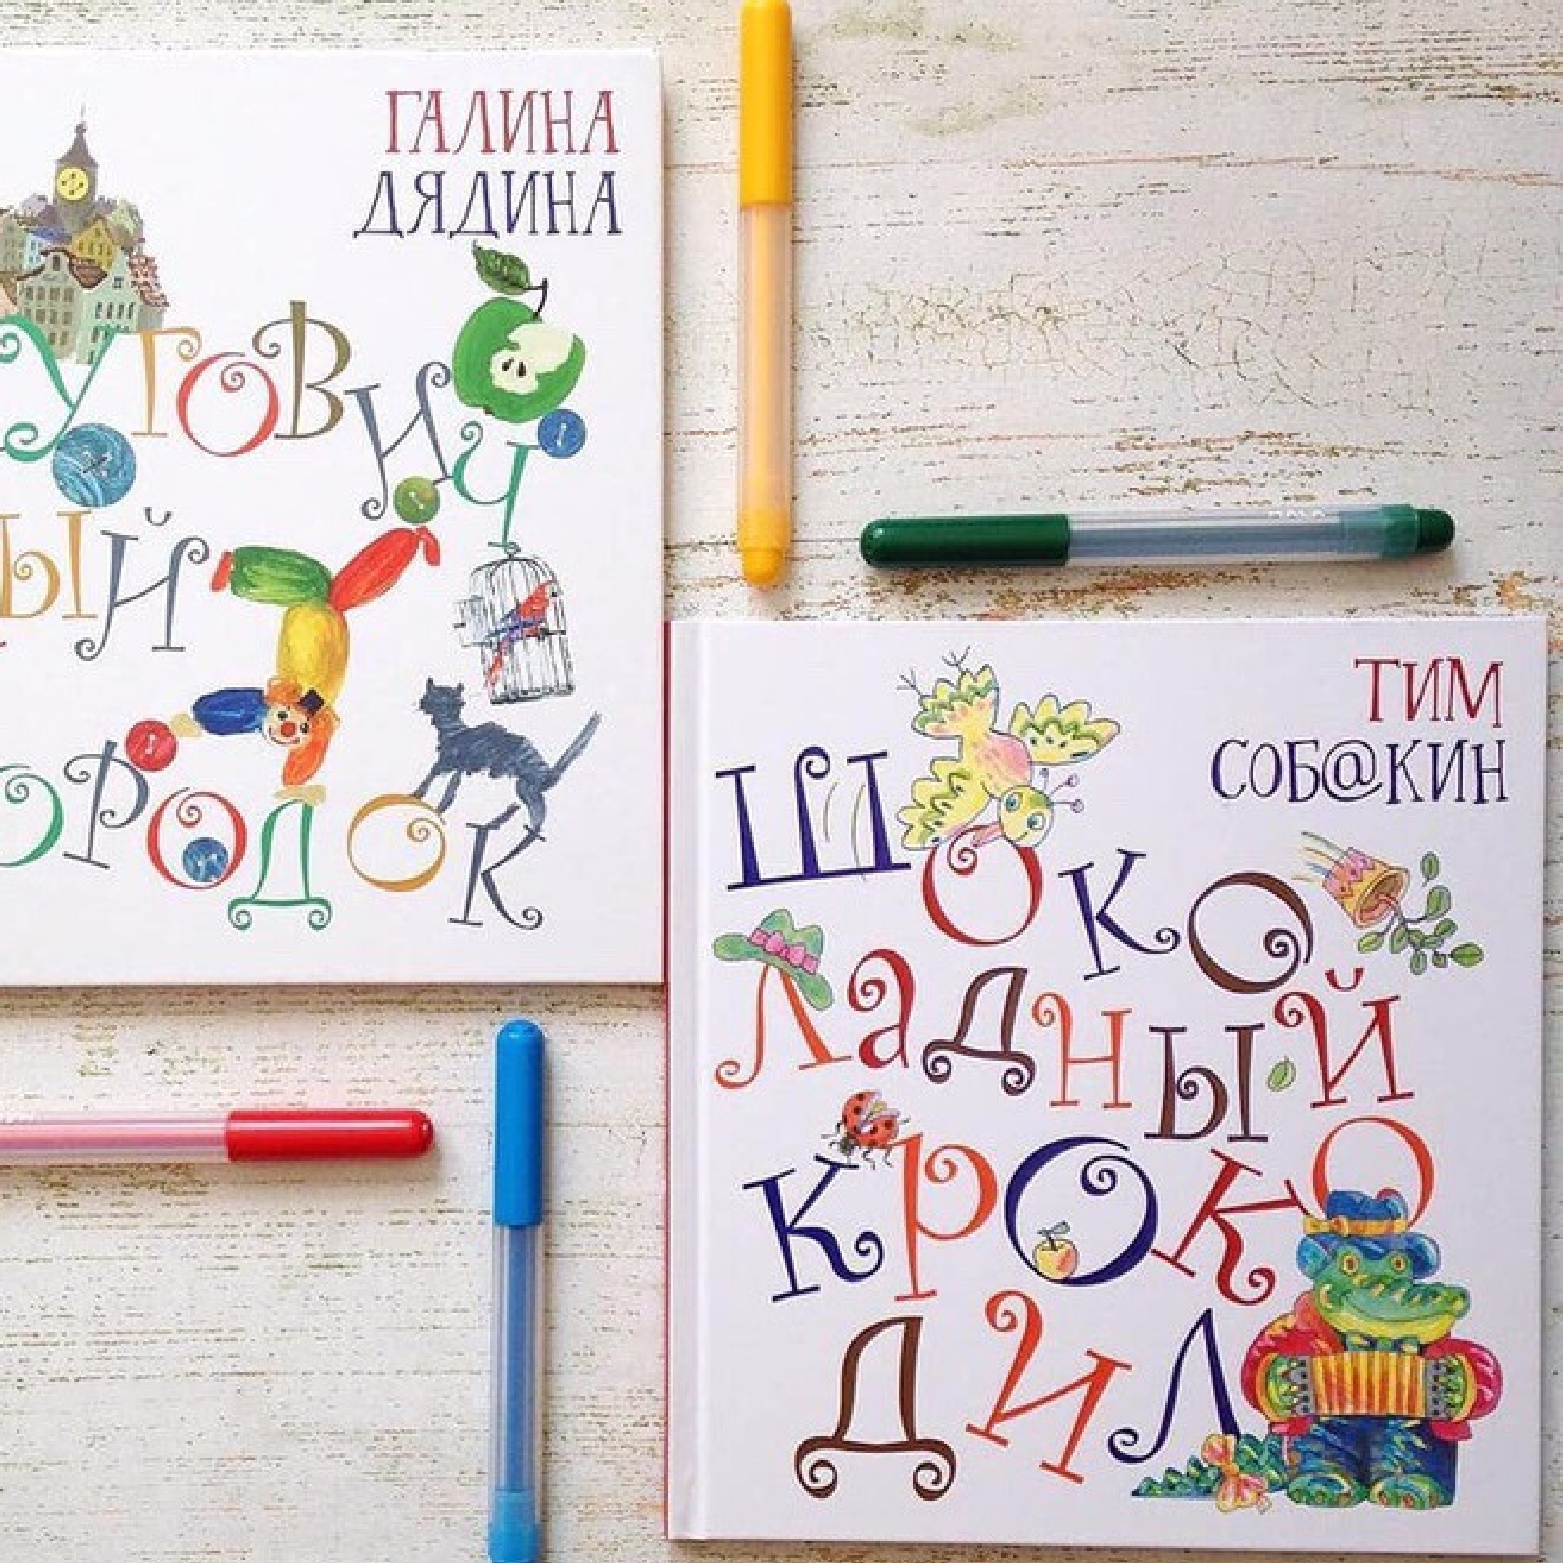 ГАЛИНА
ДЯДИНА
УГОВИЧ
ЫЙ
ОРОДОК
ТИМ
СОБ@КИН
ШОКО
ЛаДНЫЙ
КРОКО
ДИЛ